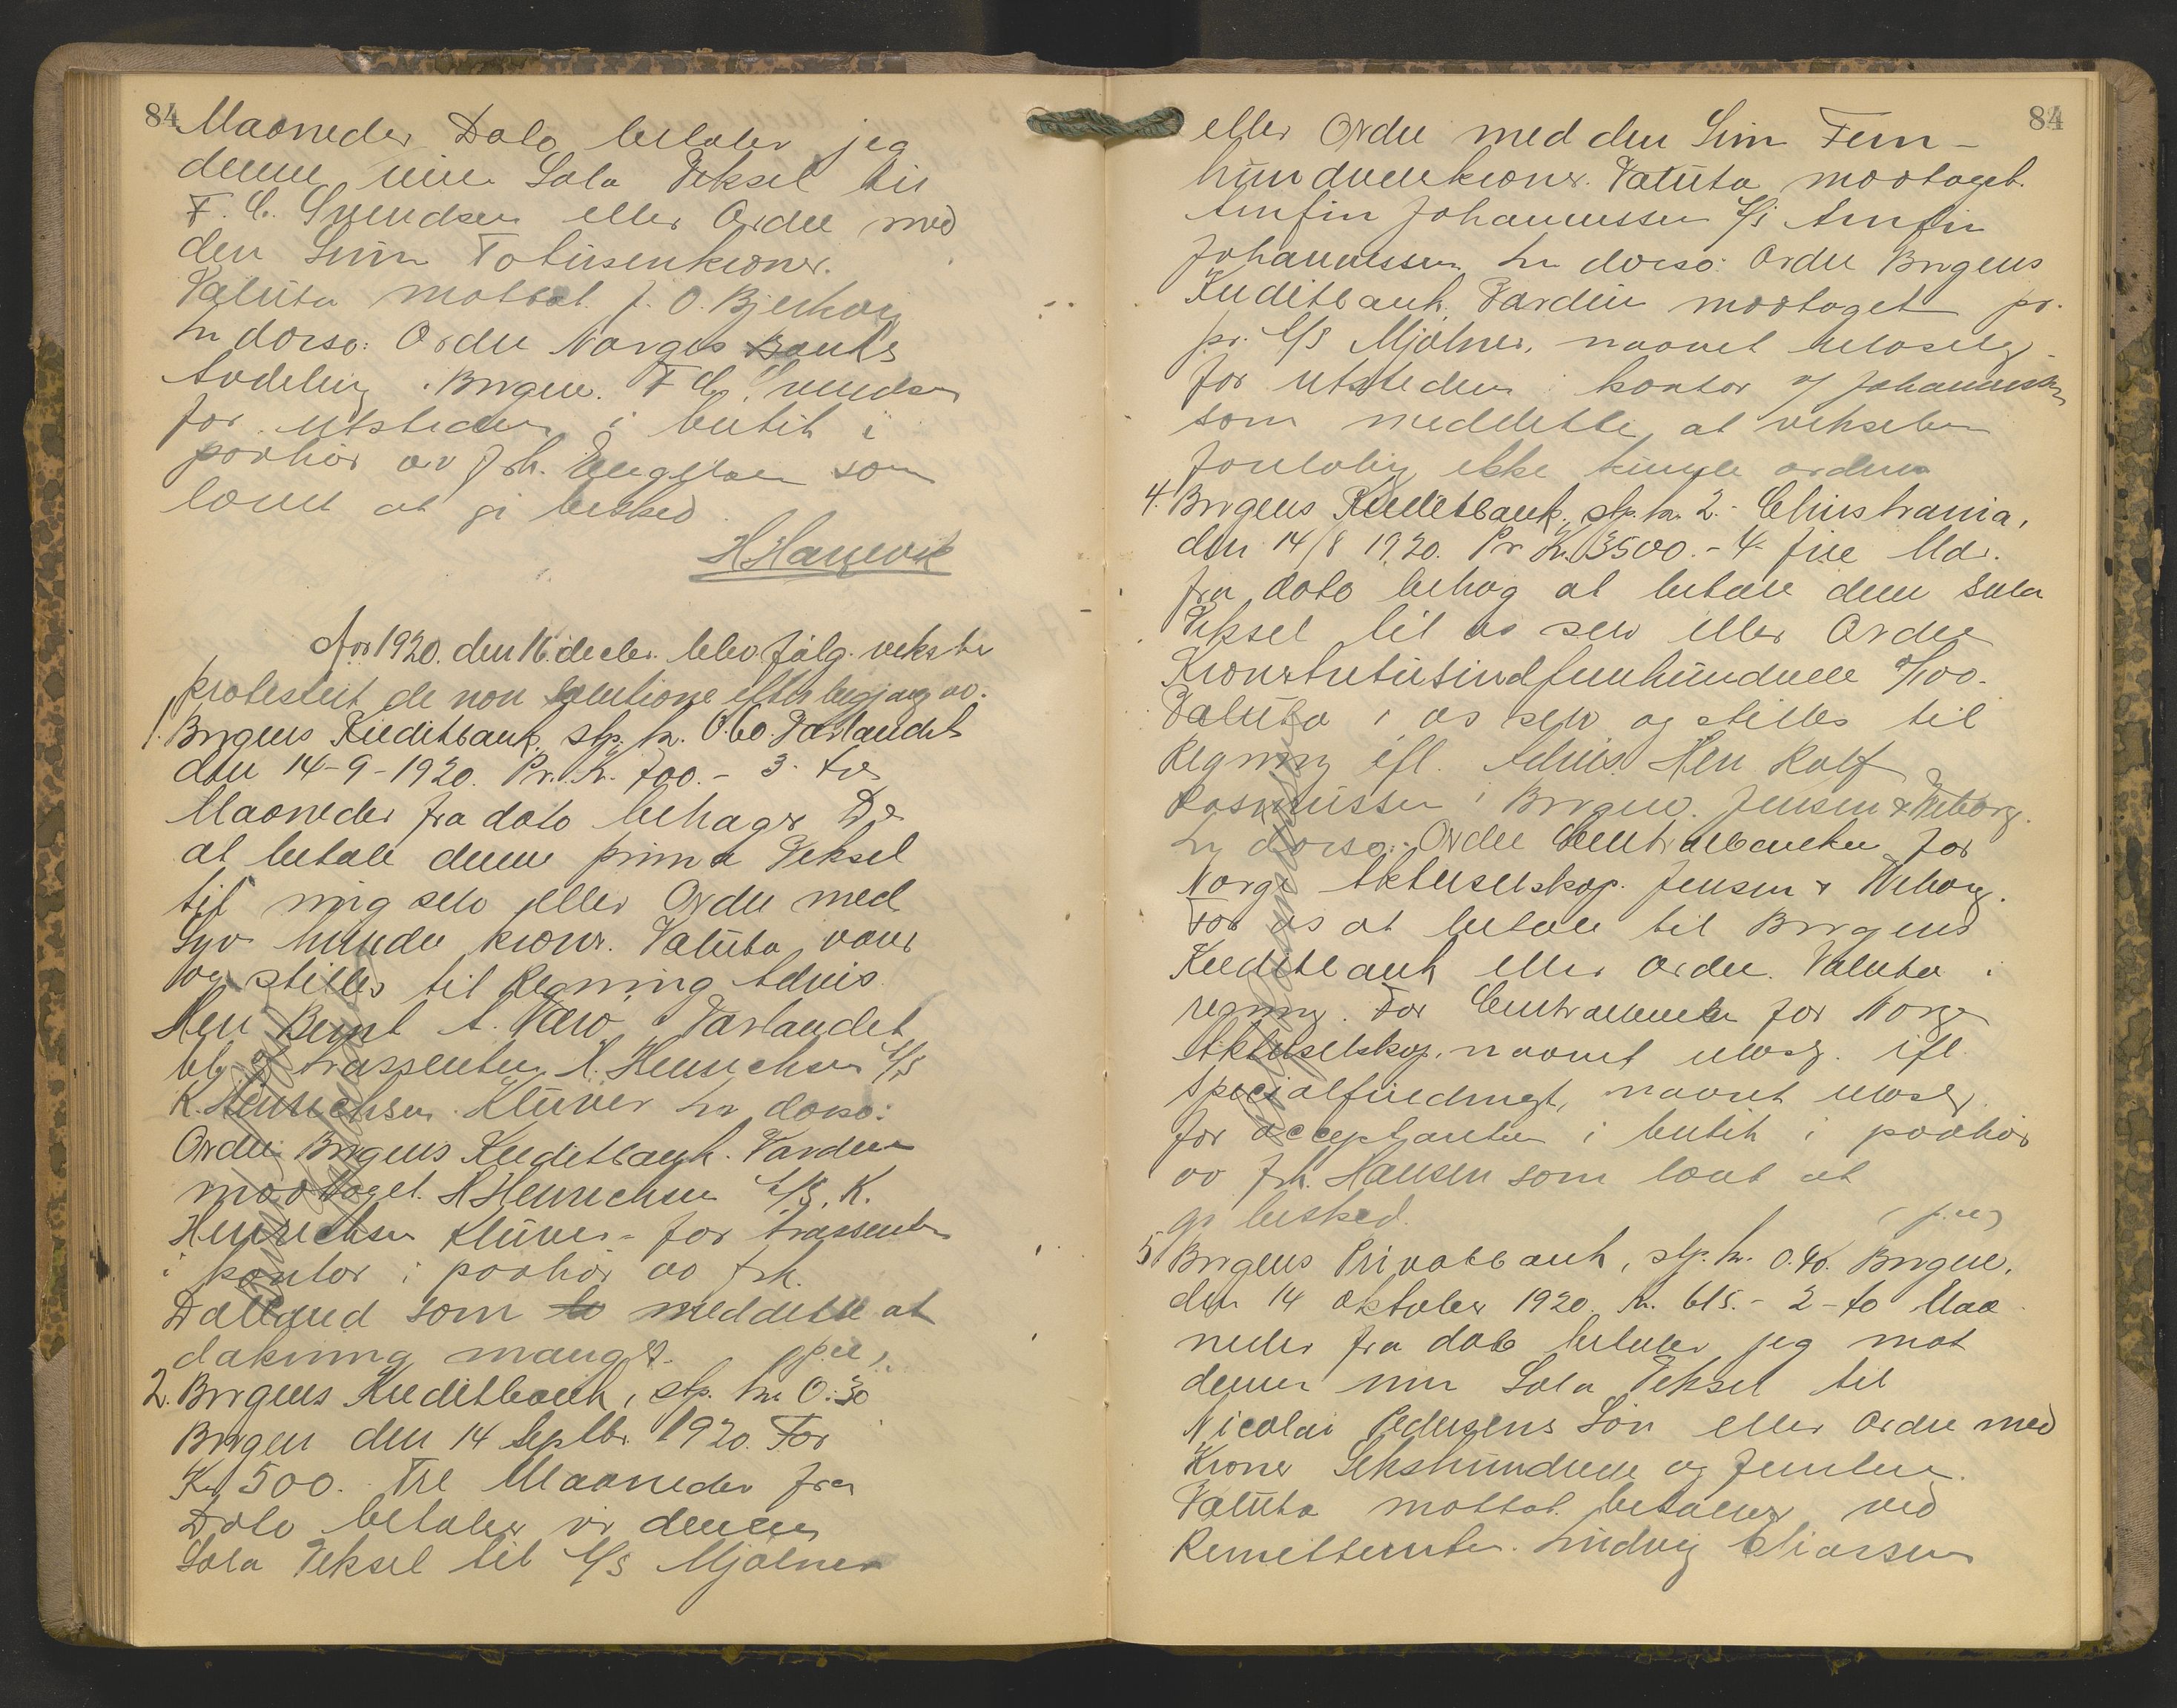 84
Maaneder Dato betaler jeg
denne min Sola Veksel til
F. C. Svendsen eller Ordre med
den Sum Totusenkroner.
Valuta mottat. J. O. Bjerkvig
In dorso: Ordre Norges Banks
Avdeling i Bergen. F C Svendsen
for utstederen i butik i
paahør av frk. Engelsen som
lovet at gi besked.
H Haukevik
Aar 1920. den 16. decbr. blev følg. veksler
protestert de non solutione efter begjæring av.
1. Bergens Kreditbank, stp. kr. 0.60. Farlandet
den 14-9-1920. Pr. Kr. 700.- 3- tre
Maaneder fra dato behager De
at betale denne prima Veksel
til mig selv eller Ordre med
Syv hundre kroner. Valuta varer
og stilles til Regning Advis.
Herr Bernt A. Farlandet
trassenten K. Henrichsen A/S
K. Henrichsen Klüver In dorso:
Ordre Bergens Kreditbank. Værdien
modtaget. K Henrichsen A/S. K.
Henrichsen Klüver - for trassenten
i kontor i paahør av frk.
Dalland som meddelte at
dækning manglet.
2. Bergens Kreditbank, stp. kr. 0.30
Bergen den 14 Septbr. 1920. For
Kr 500. Tre Maaneder fra
Dato betaler vi denne
Sola Veksel til A/S Mjølner
84
eller Ordre med den Sum Fem-
hundredekroner. Valuta mottaget.
Arnfin Johannessen A/S Arnfin
Johannessen In dorso: Ordre Bergens
Kreditbank. Værdien mottaget pr.
pr. A/S Mjølner, navnet ulæselig
for utstederen i kontor v/ Johannessen
som meddelte, at vekselen
foreløbig ikke kunde ordnes
4. Bergens Kreditbank, stp. kr. 2.- Christiania,
den 14/8 1920. Pr Kr. 3500.- 4- fire Mdr.
fra dato behag at betale denne Sola
Veksel til os selv eller Ordre
Kronertretusindfemhundrede 0/100.
Valuta i os selv og stilles til
Regning ifl. Advis. Herr Rolf
Rasmussen i Bergen. Jensen & Wiborg.
In dorso: Ordre Centralbanken for
Norge Aktieselskap. Jensen & Wiborg.
For os at betale til Bergens
Kreditbank eller ordre. Valuta i
regning. For Centralbanken for Norge
Aktieselskap, navnet ulæsl. ifl.
Specialfuldmagt, navnet ulæsl.
for acceptanten i butik i paahør
av frk. Hansen som lovet at
gi besked.
5 Bergens Privatbank, stp. kr. 0.40. Bergen,
den 14 oktober 1920. Kr. 615.- 2- to Maa
neder fra dato betaler jeg mot
denne min Sola Veksel til
Nicolai Pedersens Søn eller Ordre med
Kroner Sekshundrede og femten.
Valuta mottat. betales ved
Remittenten. Ludvig Eliassen